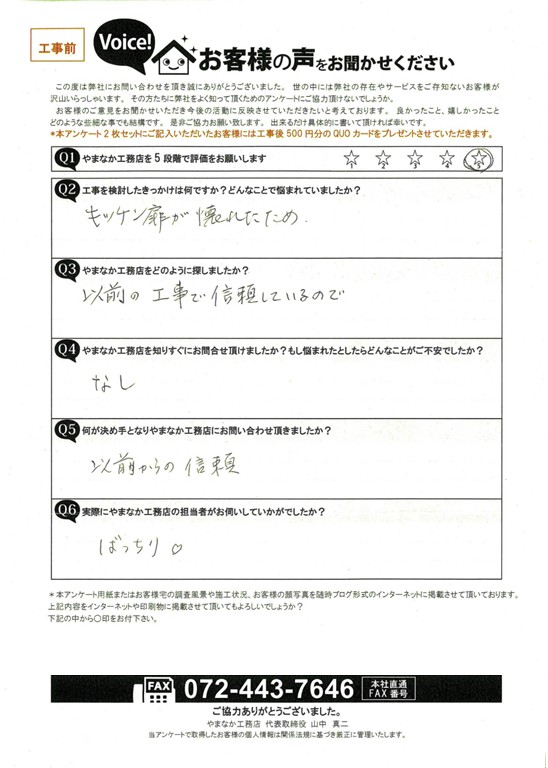 工事前
Voice!
お客様の声をお聞かせください
この度は弊社にお問い合わせを頂き誠にありがとうございました。 世の中には弊社の存在やサービスをご存知ないお客様が
沢山いらっしゃいます。 その方たちに弊社をよく知って頂くためのアンケートにご協力頂けないでしょうか。
お客様のご意見をお聞かせいただき今後の活動に反映させていただきたいと考えております。 良かったこと、嬉しかったこと
どのような些細な事でも結構です。 是非ご協力お願い致します。 出来るだけ具体的に書いて頂ければ幸いです。
*本アンケート2枚セットにご記入いただいたお客様には工事後500円分のQUOカードをプレゼントさせていただきます。
Q1 やまなか工務店を5段階で評価をお願いします
☆1 ☆2 ☆3 ☆4 ☆5
Q2 工事を検討したきっかけは何ですか?どんなことで悩まれていましたか?
キッケン扉が懐れたため.
Q3 やまなか工務店をどのように探しましたか?
以前の工事で信頼しているので
Q4 やまなか工務店を知りすぐにお問合せ頂けましたか?もし悩まれたとしたらどんなことがご不安でしたか?
なし
Q5 何が決め手となりやまなか工務店にお問い合わせ頂きましたか?
以前からの信頼
Q6 実際にやまなか工務店の担当者がお伺いしていかがでしたか?
ばっちり♡
*本アンケート用紙またはお客様宅の調査風景や施工状況、お客様の顔写真を随時ブログ形式のインターネットに掲載させて頂いております。
上記内容をインターネットや印刷物に掲載させて頂いてもよろしいでしょうか?
下記の中から○印をお付下さい。
FAX 072-443-7646 本社直通
FAX番号
ご協力ありがとうございました。
やまなか工務店 代表取締役 山中 真二
当アンケートで取得したお客様の個人情報は関係法規に基づき厳正に管理いたします。